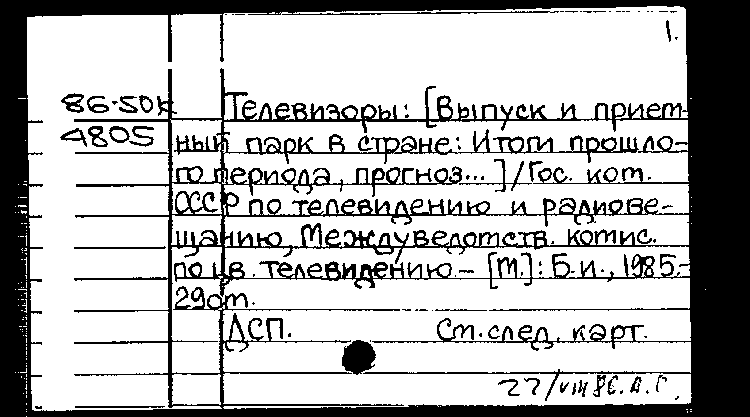 1.
86-50к Телевизоры: [Выпуск и приемт-
4805 ный парк в стране: Итоги прошло-
го периода, прогноз...]/Гос. ком.
СССР по телевидению и радиове-
щанию, Междуведомств. комис.
по цв. телевидению – [М.]: Б.и., 1985.-
29 ст.
ДСП. См. след. карт.
22/VIII 86. А.Г.